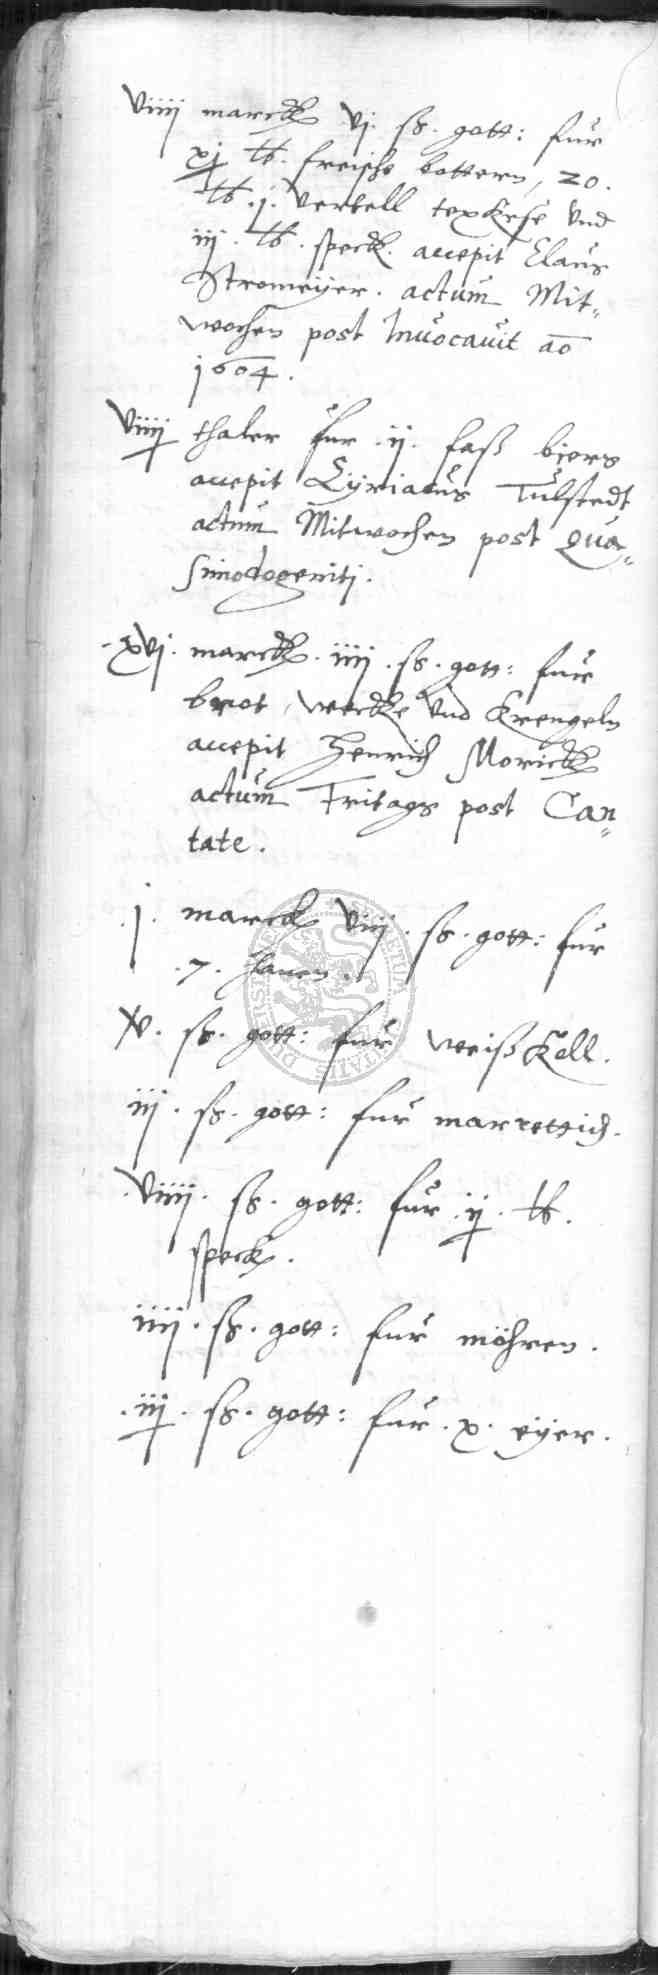 viiij marck vj. ss. gott: fur
xj lb. freische bottern, 20.
lb. j. vertell texkese und
iij. lb. speck. accepit Claus
Stromeÿer. actum Mit-
wochen post Invocavit ao
1604.
viiij thaler fur .ij. faß biers
accepit Cÿriacus Tulstedt
actum Mitwochen post Qua-
simodogeniti.
.xvj. marck. iiij. ss. gott: fur
brot, wecke und Krengeln
accepit Henrich Morick
actum Fritags post Can-
tate.
.j. marck viij. ss. gott: fur
.7. hanen.
xv. ss. gott: fur weiß Koll.
iij. ss. gott: fur marrettich.
.viiij. ss. gott: fur .ij. lb.
speck.
iiij. ss. gott: fur möhren.
.iij. ss. gott: fur .x. eÿer.